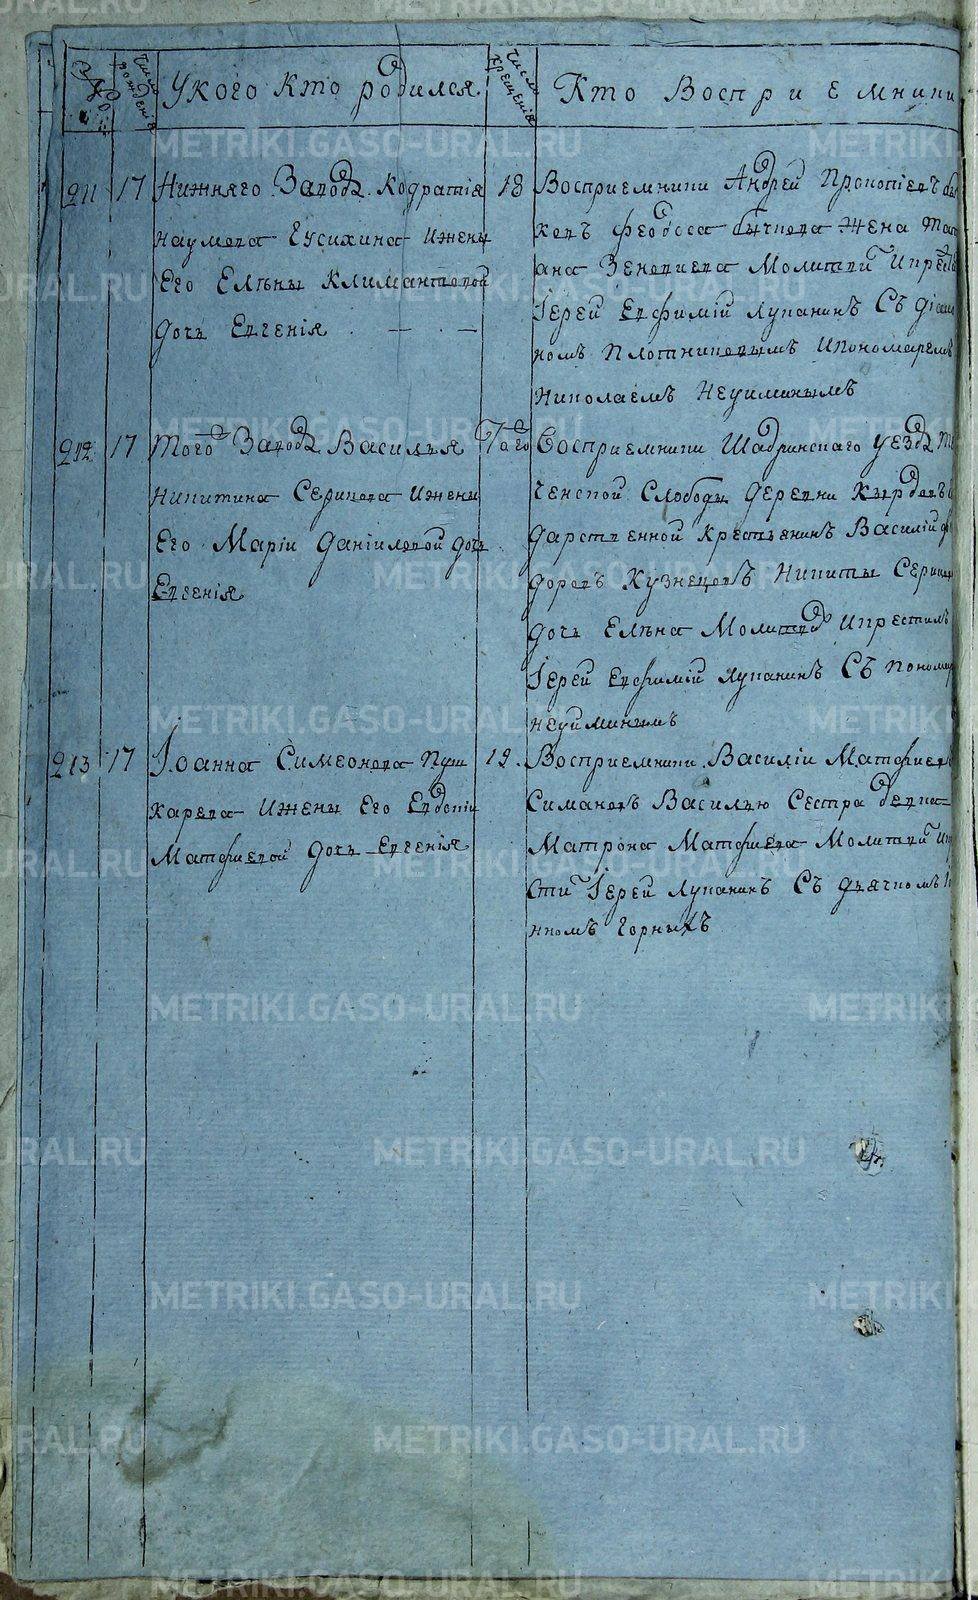 Число рождения
У кого кто родился
Число крещения
Кто Восприемники
211 17 Нижняго Завода Кодратия
Наумова Гусихина и жены
Его Елены Климантовой
дочь Евгения
18 Восприемники Андрей Прокопiевъ
Феодоса Бычкова Жена
Зеновиева Молитвой и
Iерей Евфимий Лупанинъ Съ
Плотниковымъ и пономаремъ
Николаемъ Неуиминымъ
212 17 Того Завода Василья
Никитина Серикова и жены
Его Марiи Данiиловой дочь
Евгения
Того Восприемники Шадринскаго уезда
ченской Слободы деревни
дарственной крестьянинъ Василiй
доровъ Кузнецовъ Никиты
дочь Елена Молитвой и крестилъ
Iерей Евфимiй Лупанинъ Съ
Неуиминымъ
213 17 Iоанна Симеонова Пуш
карева и жены Его Евдокiи
Матфиевой дочь Евгенiя
19 Восприемники Василiи
Симановъ Василью Сестра девка
Матрона Матфиева Молитвой и
сти Iерей Лупанинъ Съ дьячкомъ
нномъ Горныхъ
METRIKI.GASO-URAL.RU